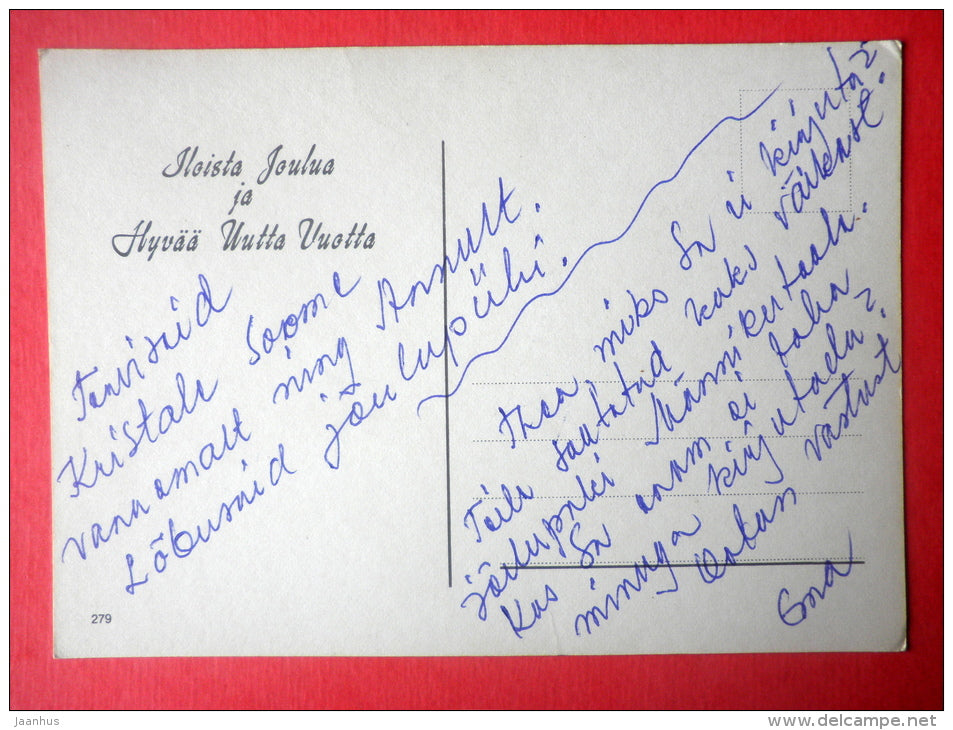 Iloista Joulua
ja
Hyvää Uutta Vuotta
Tervisaid
Kristale Soome
vanaemalt ning Annult.
Lõbusaid jõulupühi.
Thea miks Sa ei kirjuta?
Teile saatsud kaks väikest
jõulupaki Männiku taale.
Kas Sa enam ei taha
minuga kirjutada?
Ootan vastust
Ema
279
Jaanhus
www.delcampe.net